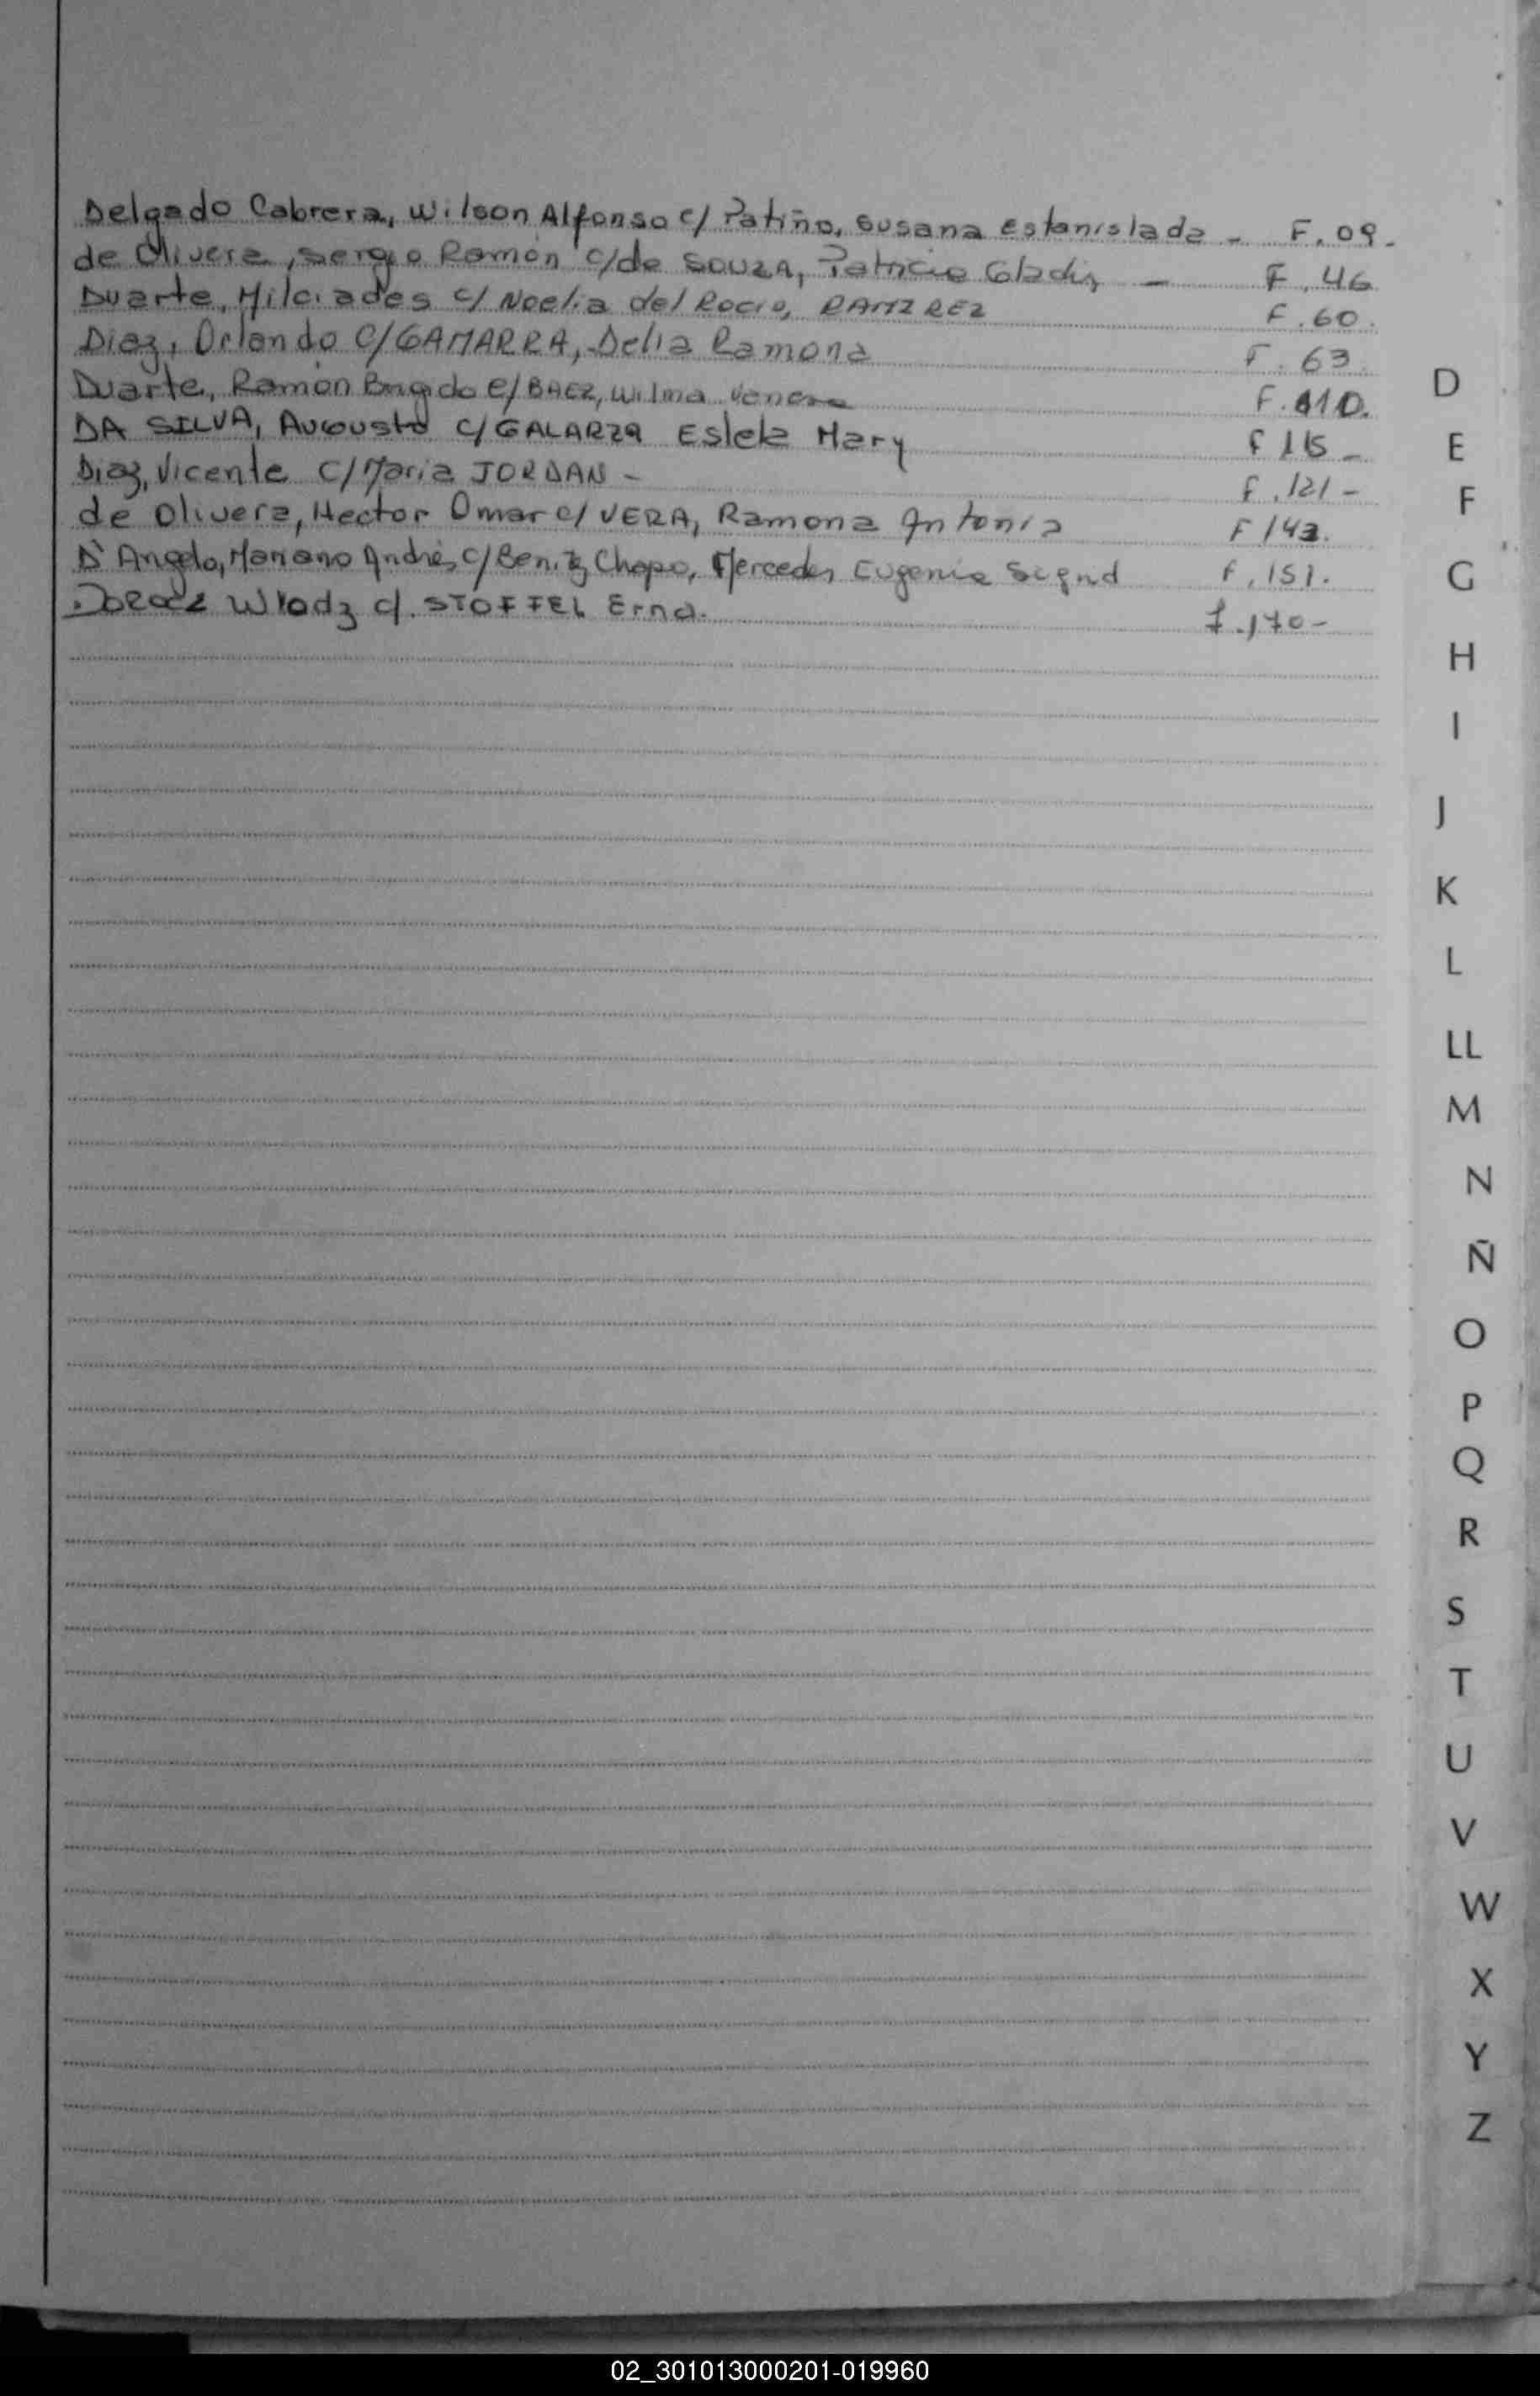 Delgado Cabrera, Wilson Alfonso c/ Patiño, Susana Estanislada - F. 09.
de Olivera, Sergio Ramón c/de SOUZA, Patricia Gladis - F. 46
Duarte, Milciades c/ Noelia del Rocio, RAMIREZ F. 60.
Diaz, Orlando C/GAMARRA, Delia Ramona F. 63.
Duarte, Ramón Brigido c/BAEZ, Wilma F. 110.
DA SILVA, Augusto c/GALARZA Estela Mary F 115 -
Diaz, Vicente C/Maria JORDAN - F. 121 -
de Olivera, Hector Omar c/ VERA, Ramona Antonia F 143.
D'Angelo, Mariano Andrés c/Benitz Chapo, Mercedes Eugenia F. 151.
Wlodz c/. STOFFEL Erna. F. 170 -
D
E
F
G
H
I
J
K
L
LL
M
N
Ñ
O
P
Q
R
S
T
U
V
W
X
Y
Z
02_301013000201-019960